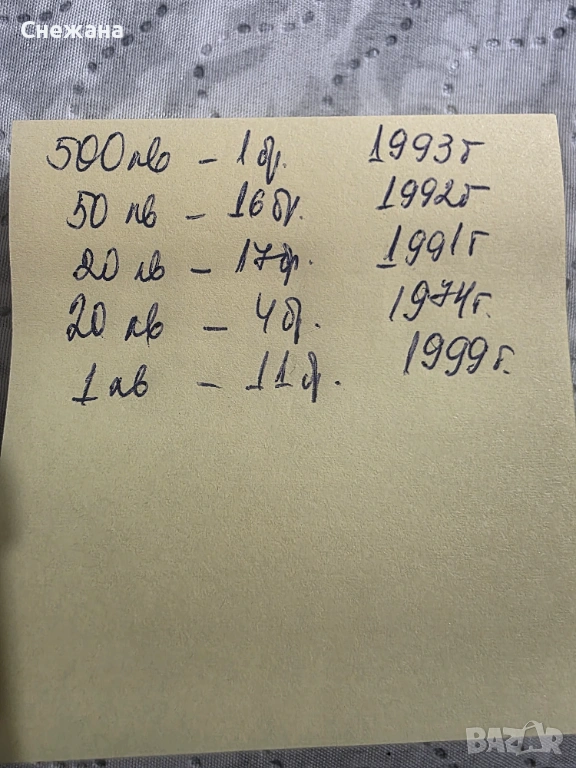 Снежана
500 лв - 1 бр. 1993 г
50 лв - 16 бр. 1992 г
20 лв - 17 бр. 1991 г
20 лв - 4 бр. 1974 г.
1 лв - 11 бр. 1999 г.
BAZAR